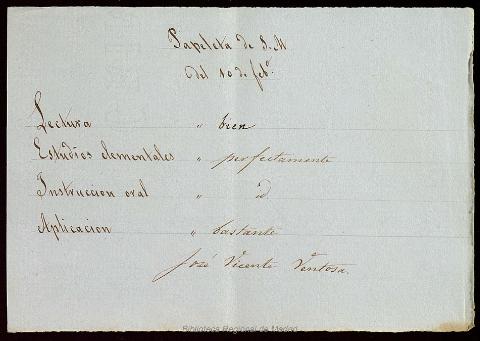 Papeleta de S. M
del 10 de febº.
Lectura " bien
Estudios elementales " perfectamente
Instruccion oral " id.
Aplicacion " bastante
José Vicente Ventosa.
Biblioteca Regional de Madrid